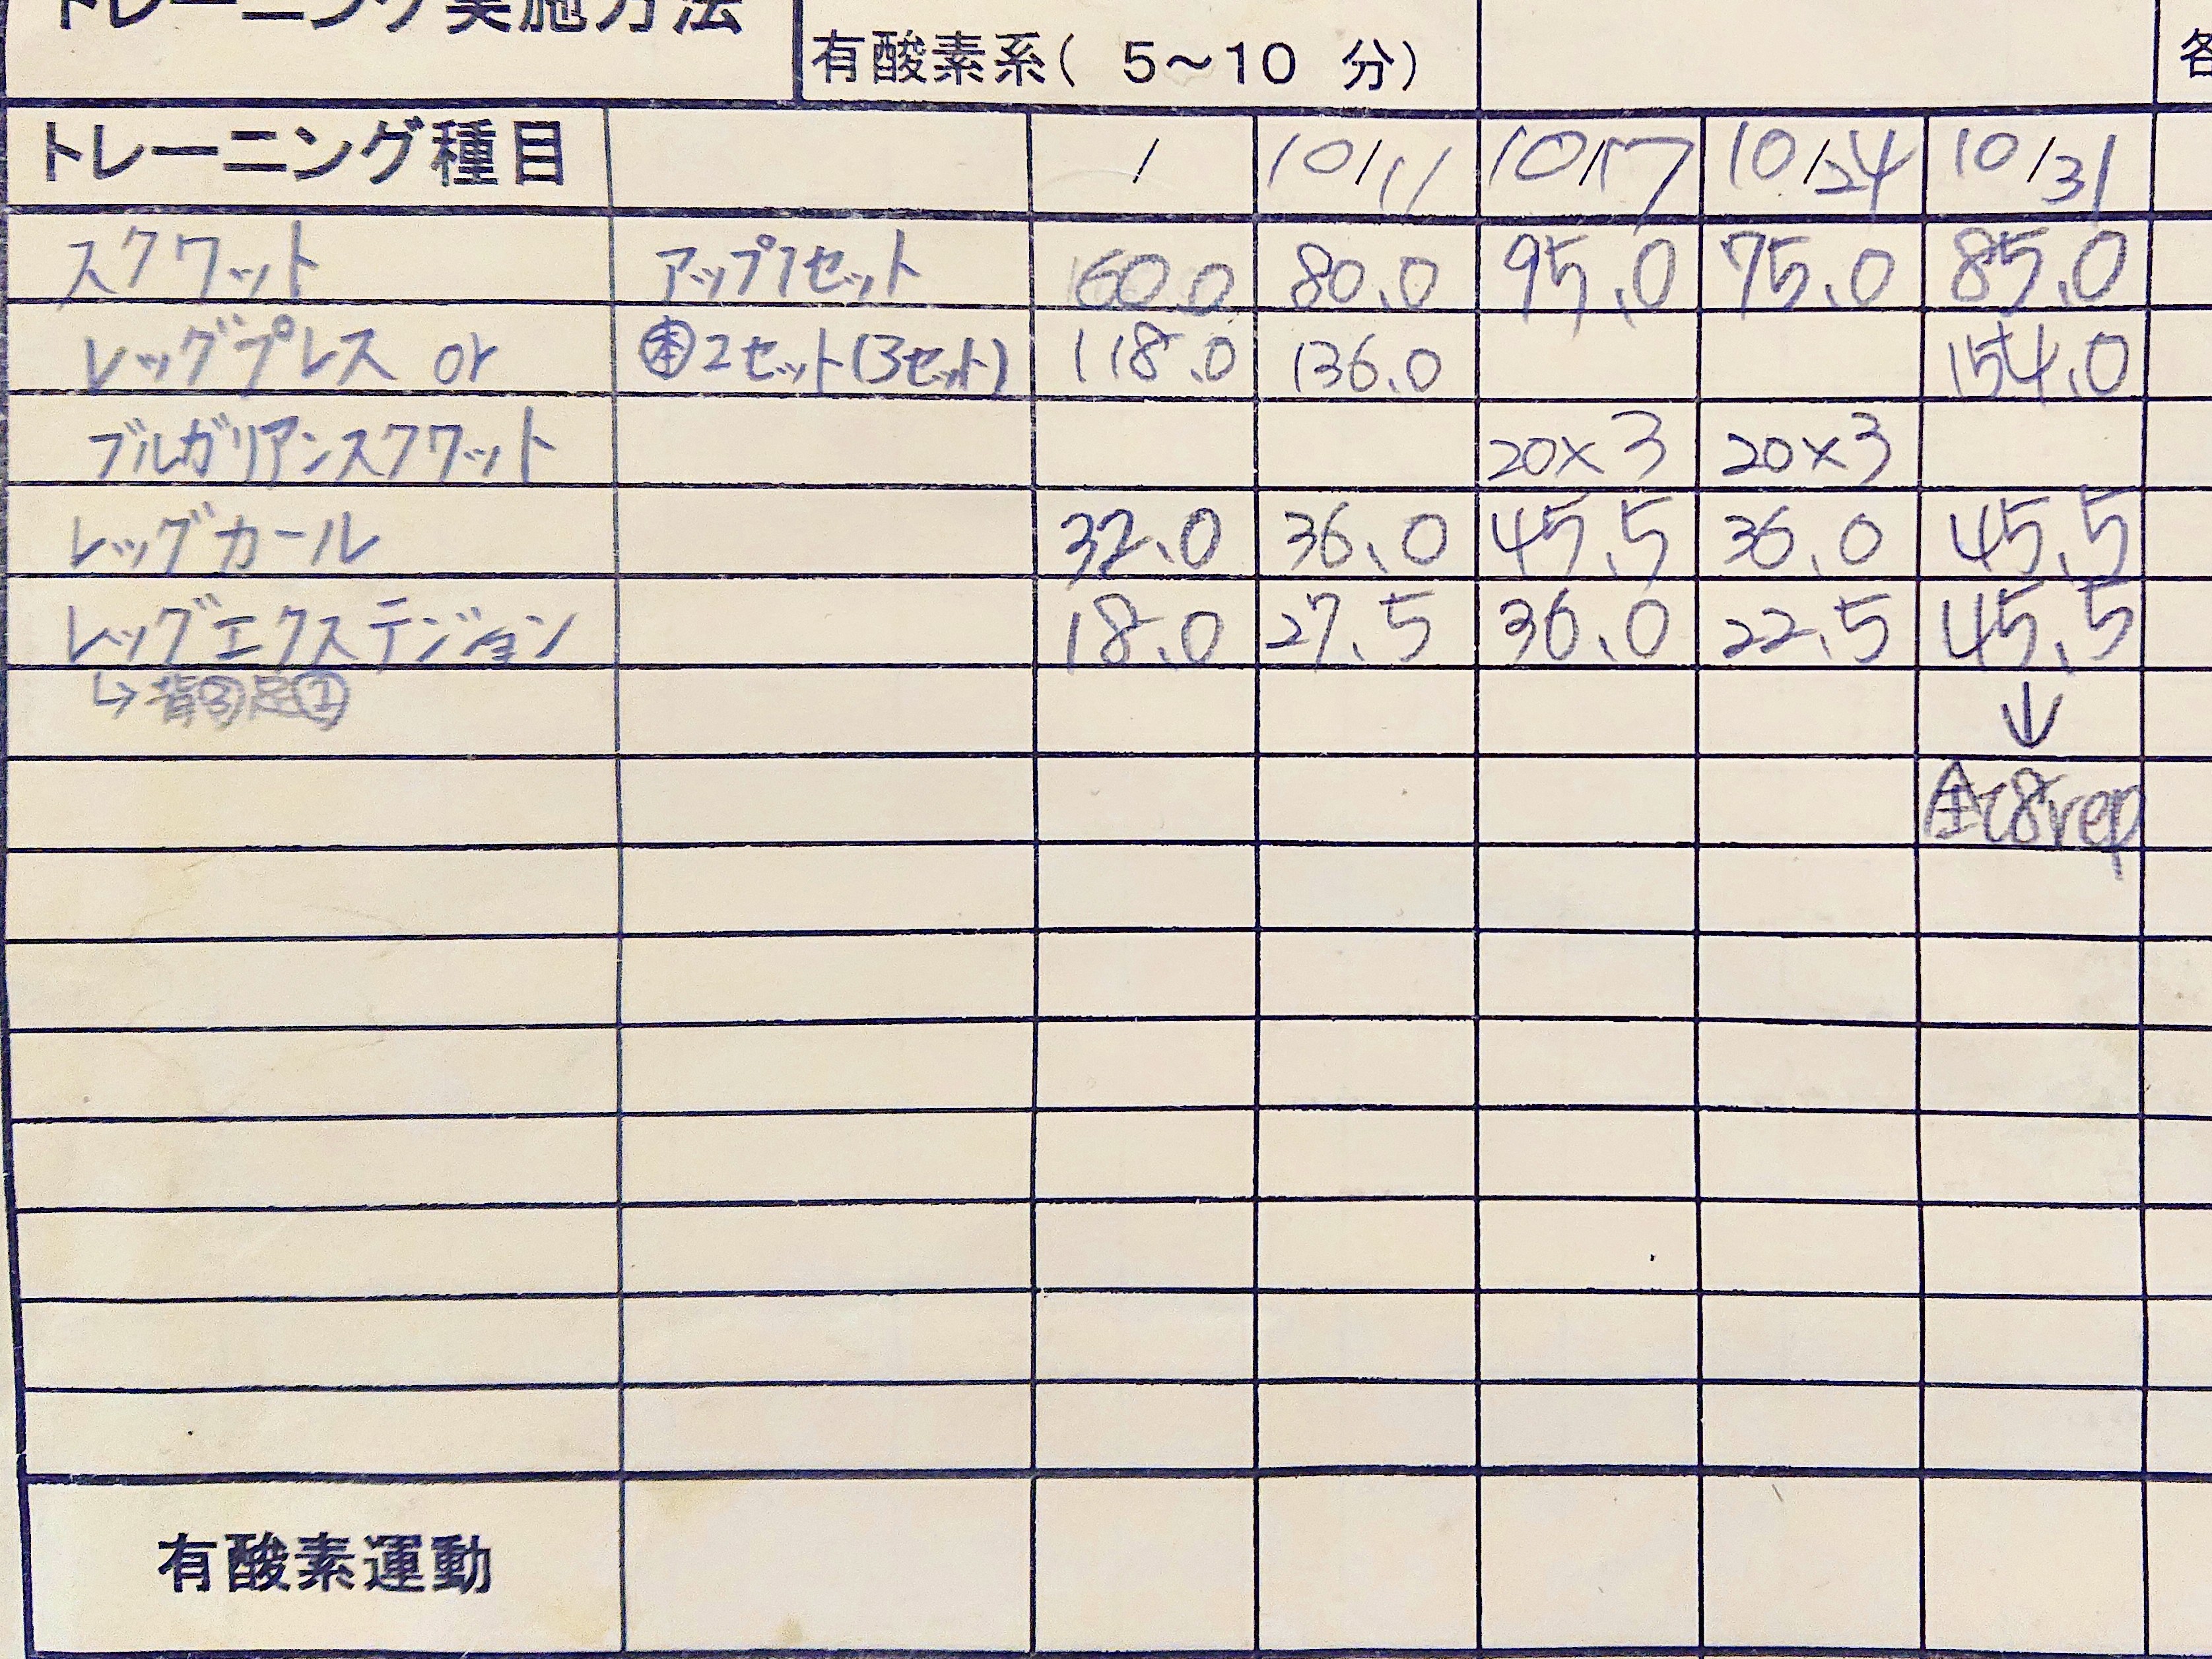 トレーニング実施方法
有酸素系( 5～10 分)
各
トレーニング種目 / 10/11 10/17 10/24 10/31
スクワット アップ1セット 60.0 80.0 95.0 75.0 85.0
レッグプレス or ㊍2セット(3セット) 118.0 136.0 154.0
ブルガリアンスクワット 20×3 20×3
レッグカール 32.0 36.0 45.5 36.0 45.5
レッグエクステンション 18.0 27.5 36.0 22.5 45.5
↳背③足① ↓
全て8rep
有酸素運動